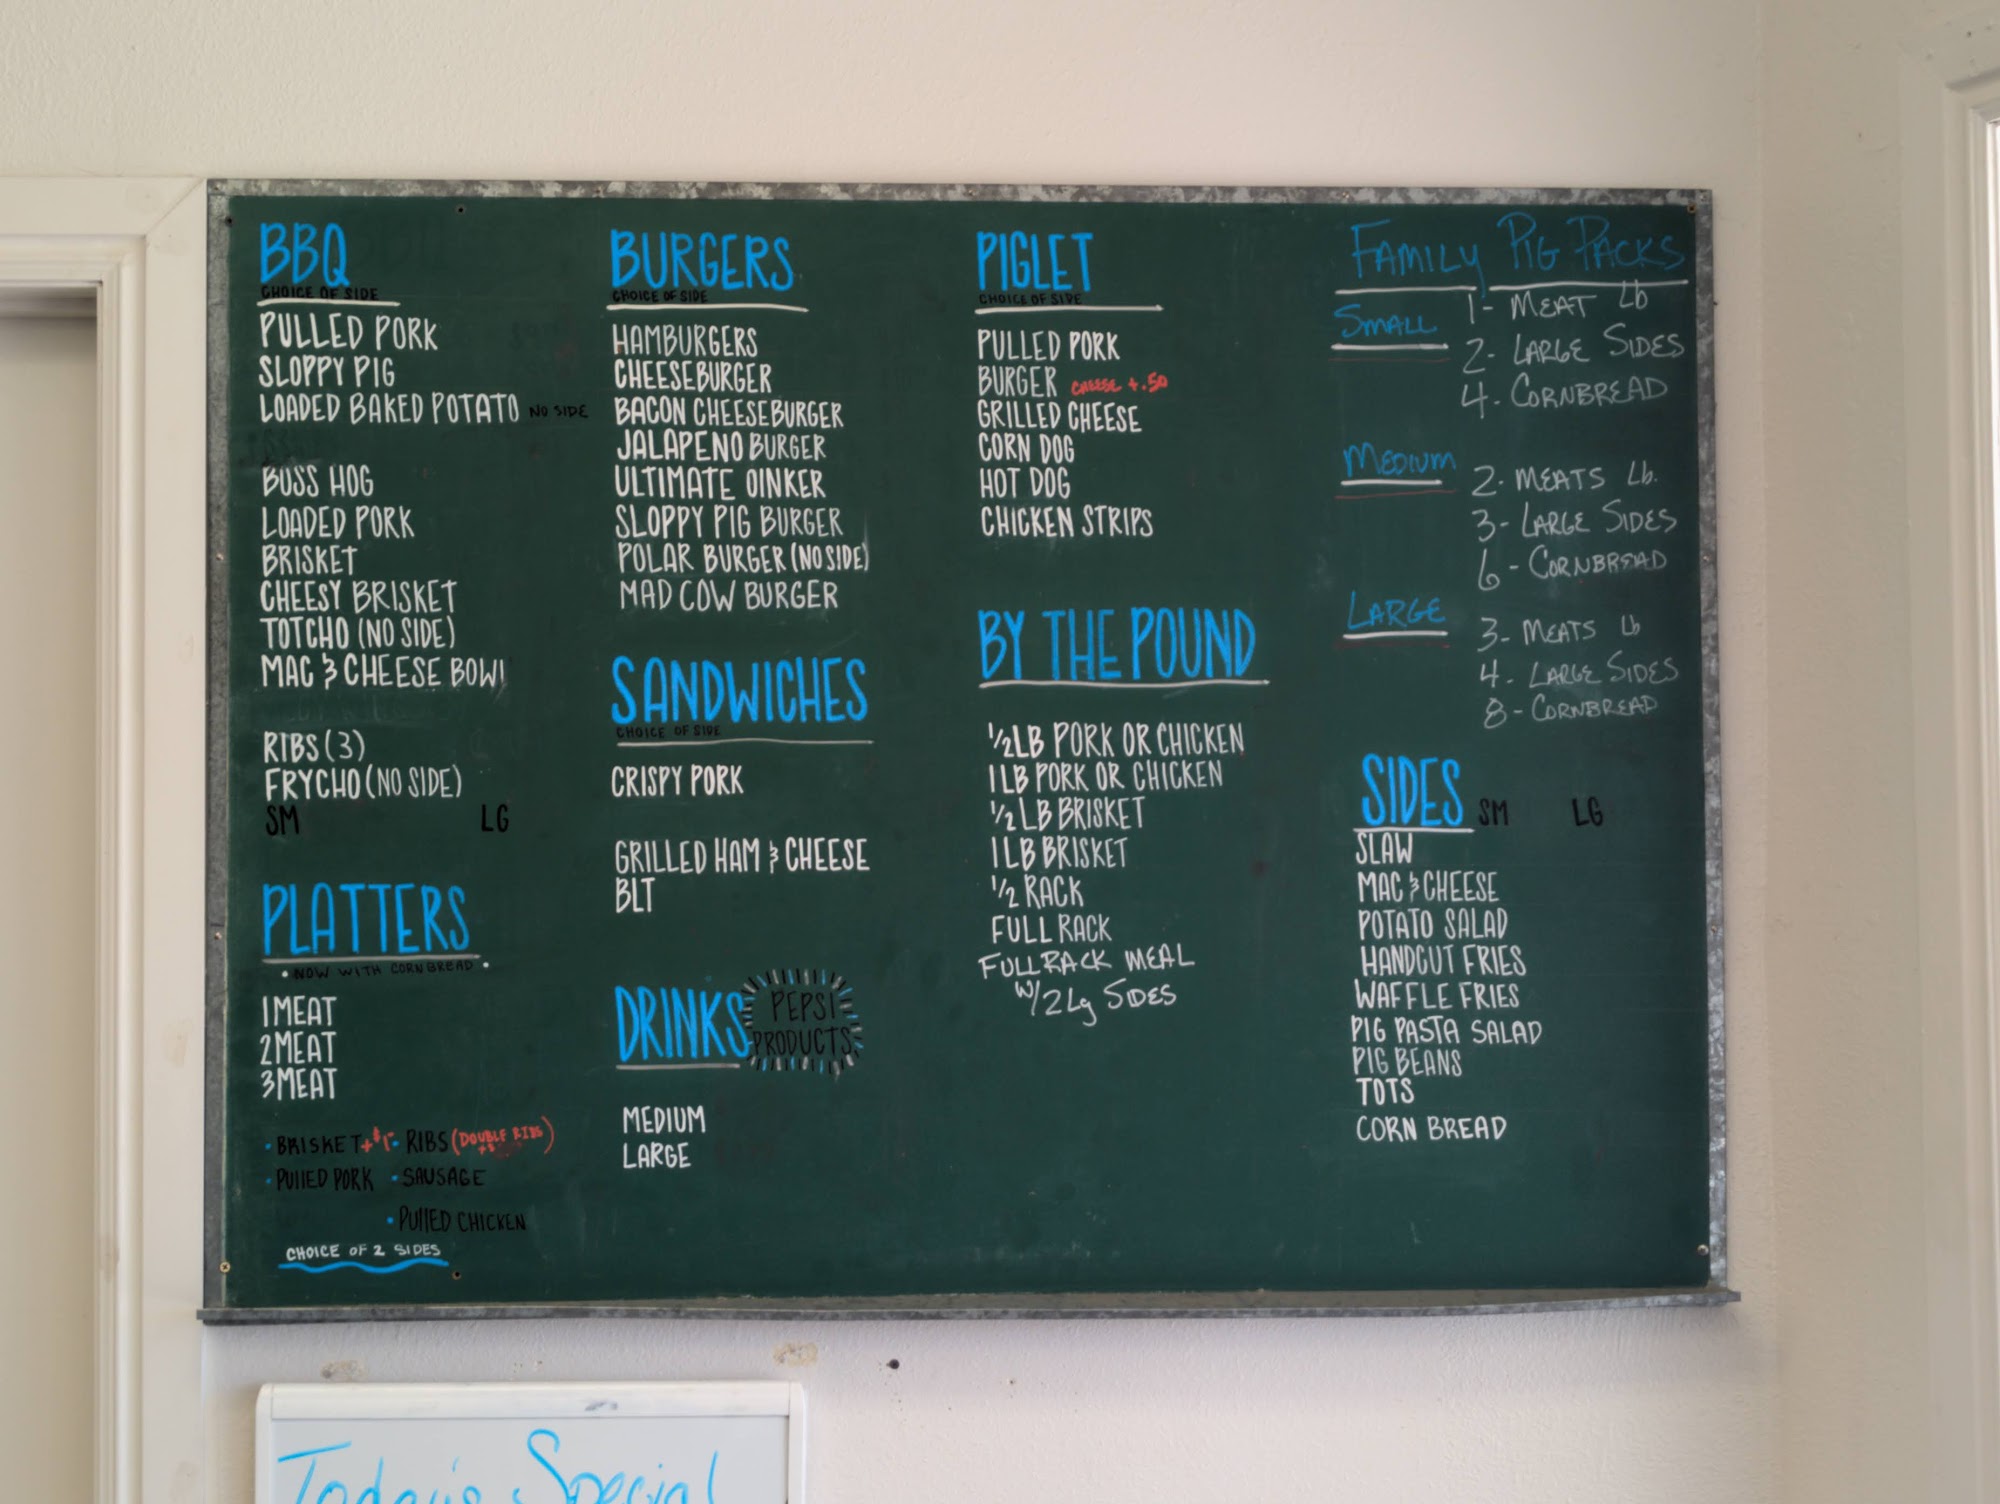 BBQ
CHOICE OF SIDE
PULLED PORK
SLOPPY PIG
LOADED BAKED POTATO NO SIDE
BOSS HOG
LOADED PORK
BRISKET
CHEESY BRISKET
TOTCHO (NO SIDE)
MAC & CHEESE BOWL
RIBS (3)
FRYCHO (NO SIDE)
SM LG
PLATTERS
• NOW WITH CORNBREAD •
1 MEAT
2 MEAT
3 MEAT
• BRISKET +$1 • RIBS (DOUBLE RIBS)
• PULLED PORK • SAUSAGE
• PULLED CHICKEN
CHOICE OF 2 SIDES
BURGERS
CHOICE OF SIDE
HAMBURGERS
CHEESEBURGER
BACON CHEESEBURGER
JALAPENO BURGER
ULTIMATE OINKER
SLOPPY PIG BURGER
POLAR BURGER (NO SIDE)
MAD COW BURGER
SANDWICHES
CHOICE OF SIDE
CRISPY PORK
GRILLED HAM & CHEESE
BLT
DRINKS
PEPSI
PRODUCTS
MEDIUM
LARGE
PIGLET
CHOICE OF SIDE
PULLED PORK
BURGER CHEESE +.50
GRILLED CHEESE
CORN DOG
HOT DOG
CHICKEN STRIPS
BY THE POUND
1/2 LB PORK OR CHICKEN
1 LB PORK OR CHICKEN
1/2 LB BRISKET
1 LB BRISKET
1/2 RACK
FULL RACK
FULL RACK MEAL
W/ 2 Lg SIDES
FAMILY PIG PACKS
SMALL 1- MEAT Lb
2- LARGE SIDES
4- CORNBREAD
MEDIUM 2- MEATS Lb.
3- LARGE SIDES
6- CORNBREAD
LARGE 3- MEATS Lb
4- LARGE SIDES
8- CORNBREAD
SIDES SM LG
SLAW
MAC & CHEESE
POTATO SALAD
HANDCUT FRIES
WAFFLE FRIES
PIG PASTA SALAD
PIG BEANS
TOTS
CORN BREAD
Today's Special